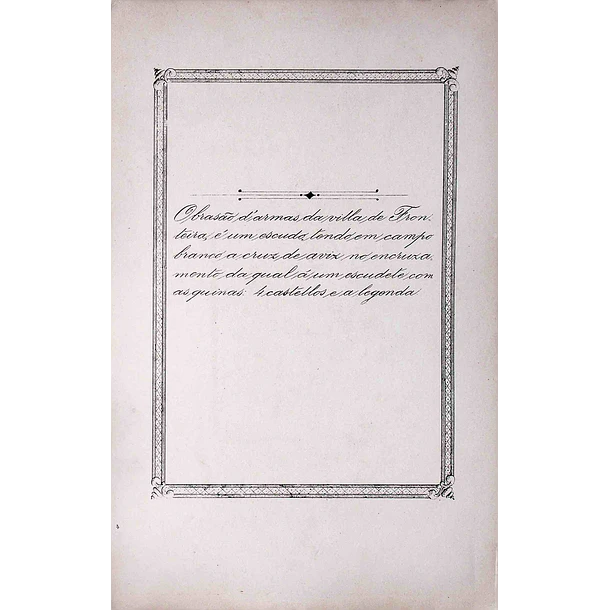 O brasão d'armas da villa de Fron-
teira, é um escudo tendo em campo
branco a cruz de aviz no encruza-
mento da qual á um escudete com
as quinas. 4 castellos e a legenda